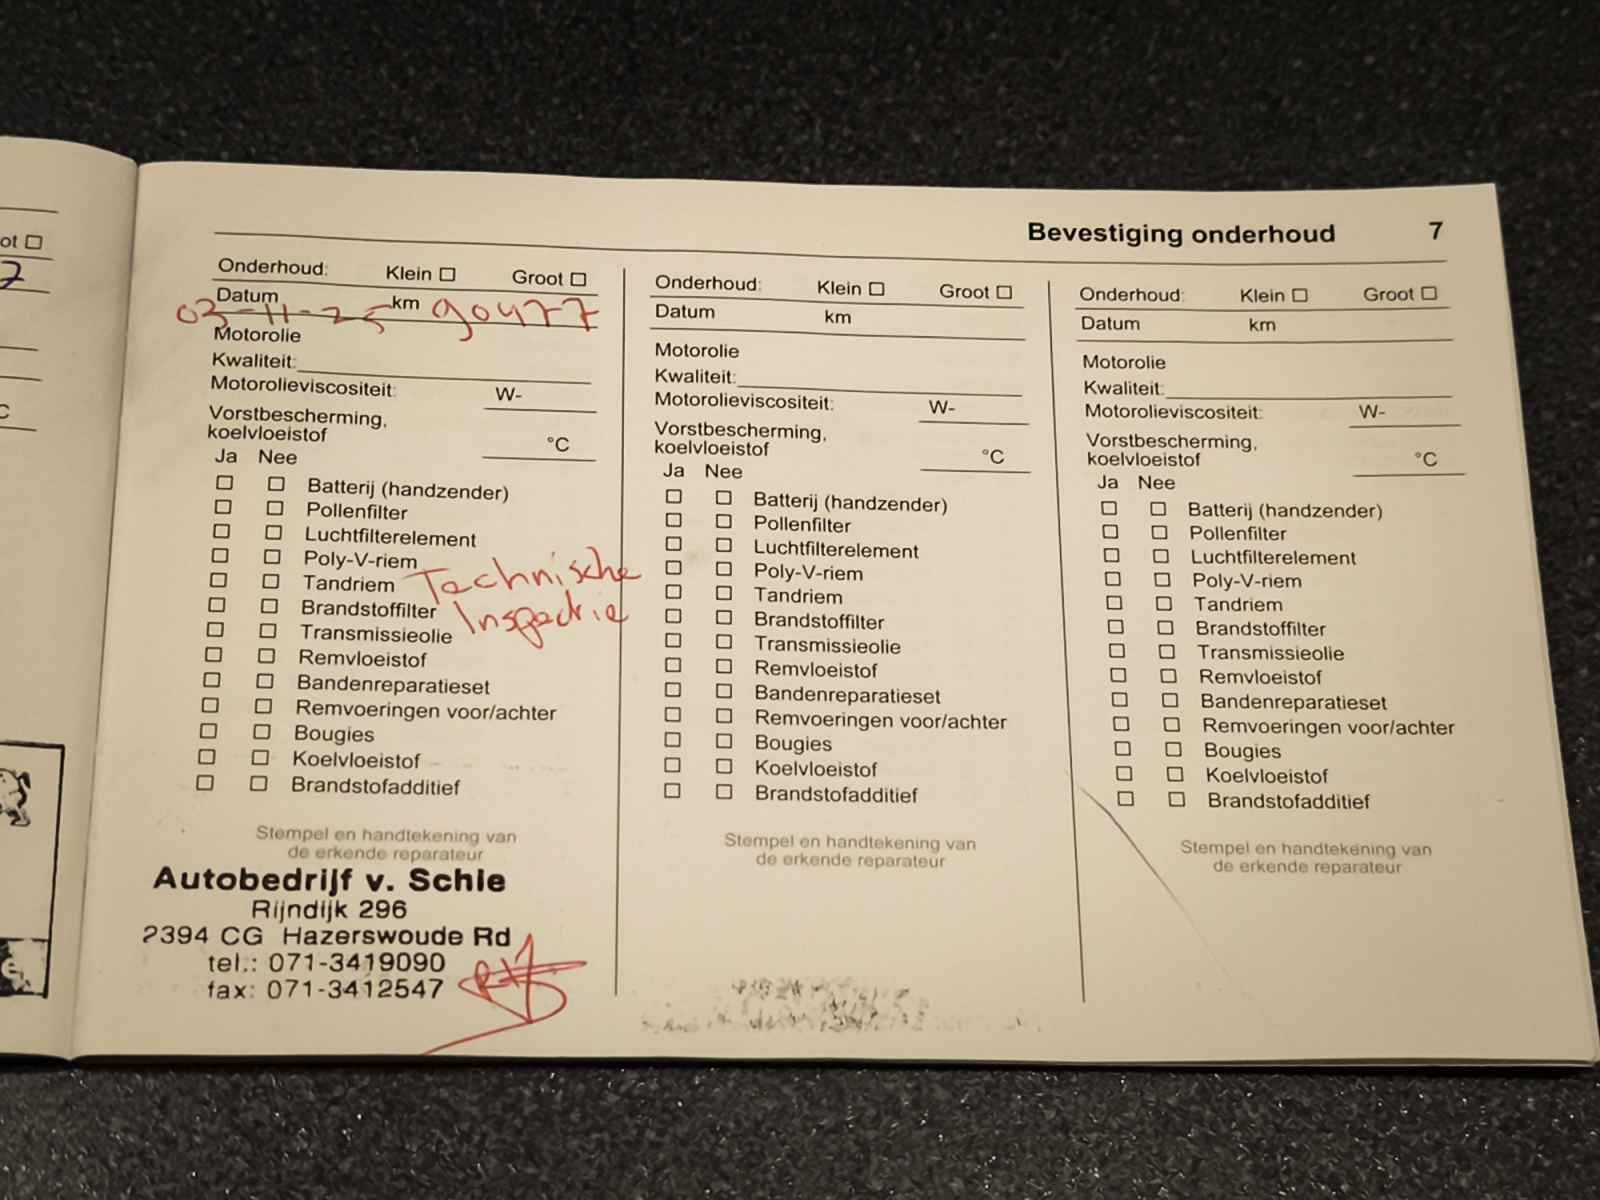 ot
7
C
Bevestiging onderhoud 7
Onderhoud: Klein Groot
Datum km
03-11-25 90477
Motorolie
Kwaliteit:
Motorolieviscositeit: W-
Vorstbescherming,
koelvloeistof °C
Ja Nee
Batterij (handzender)
Pollenfilter
Luchtfilterelement
Poly-V-riem
Tandriem
Brandstoffilter
Transmissieolie
Technische
Inspectie
Remvloeistof
Bandenreparatieset
Remvoeringen voor/achter
Bougies
Koelvloeistof
Brandstofadditief
Stempel en handtekening van
de erkende reparateur
Autobedrijf v. Schie
Rijndijk 296
2394 CG Hazerswoude Rd
tel.: 071-3419090
fax: 071-3412547
Onderhoud: Klein Groot
Datum km
Motorolie
Kwaliteit:
Motorolieviscositeit: W-
Vorstbescherming,
koelvloeistof °C
Ja Nee
Batterij (handzender)
Pollenfilter
Luchtfilterelement
Poly-V-riem
Tandriem
Brandstoffilter
Transmissieolie
Remvloeistof
Bandenreparatieset
Remvoeringen voor/achter
Bougies
Koelvloeistof
Brandstofadditief
Stempel en handtekening van
de erkende reparateur
Onderhoud: Klein Groot
Datum km
Motorolie
Kwaliteit:
Motorolieviscositeit: W-
Vorstbescherming,
koelvloeistof °C
Ja Nee
Batterij (handzender)
Pollenfilter
Luchtfilterelement
Poly-V-riem
Tandriem
Brandstoffilter
Transmissieolie
Remvloeistof
Bandenreparatieset
Remvoeringen voor/achter
Bougies
Koelvloeistof
Brandstofadditief
Stempel en handtekening van
de erkende reparateur